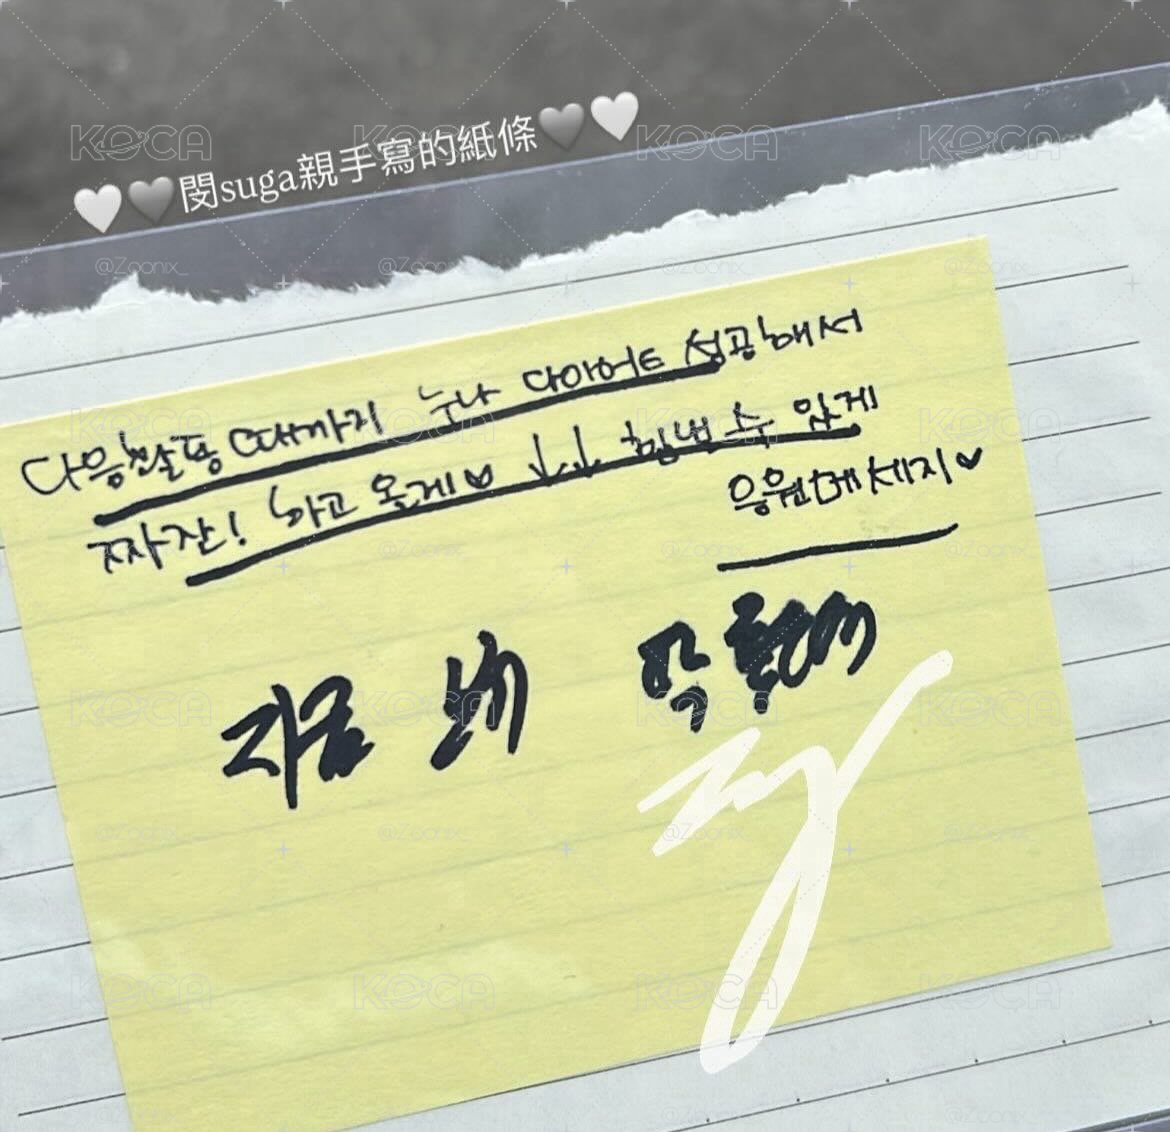 🤍🩶閔suga親手寫的紙條🩶🤍
다음활동때까지 누나 다이어트 성공해서
짜잔! 하고 올게♥ ↓↓ 힘낼 수 있게
응원메세지♥
지금
KOCA
@Zoonx_